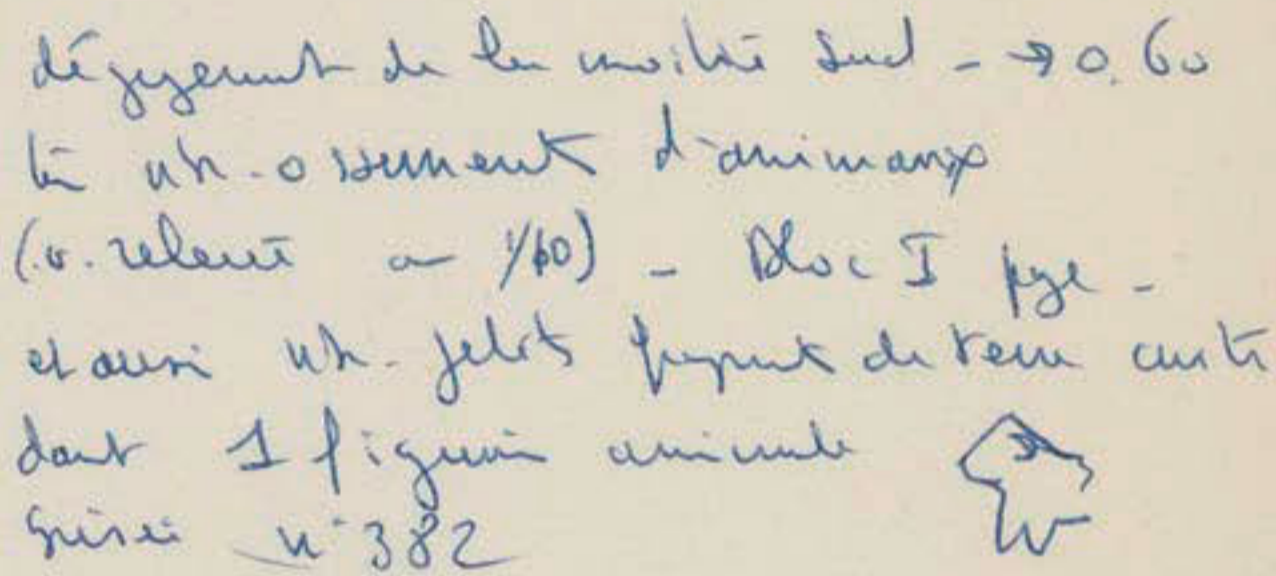 dégagement de la moitié sud - → 0.60
très nb. ossements d'animaux
(v. relevé au 1/10) - Bloc I
et aussi nb. petits fragments de terre cuite
dont 1 figurine animale
brisée n° 382